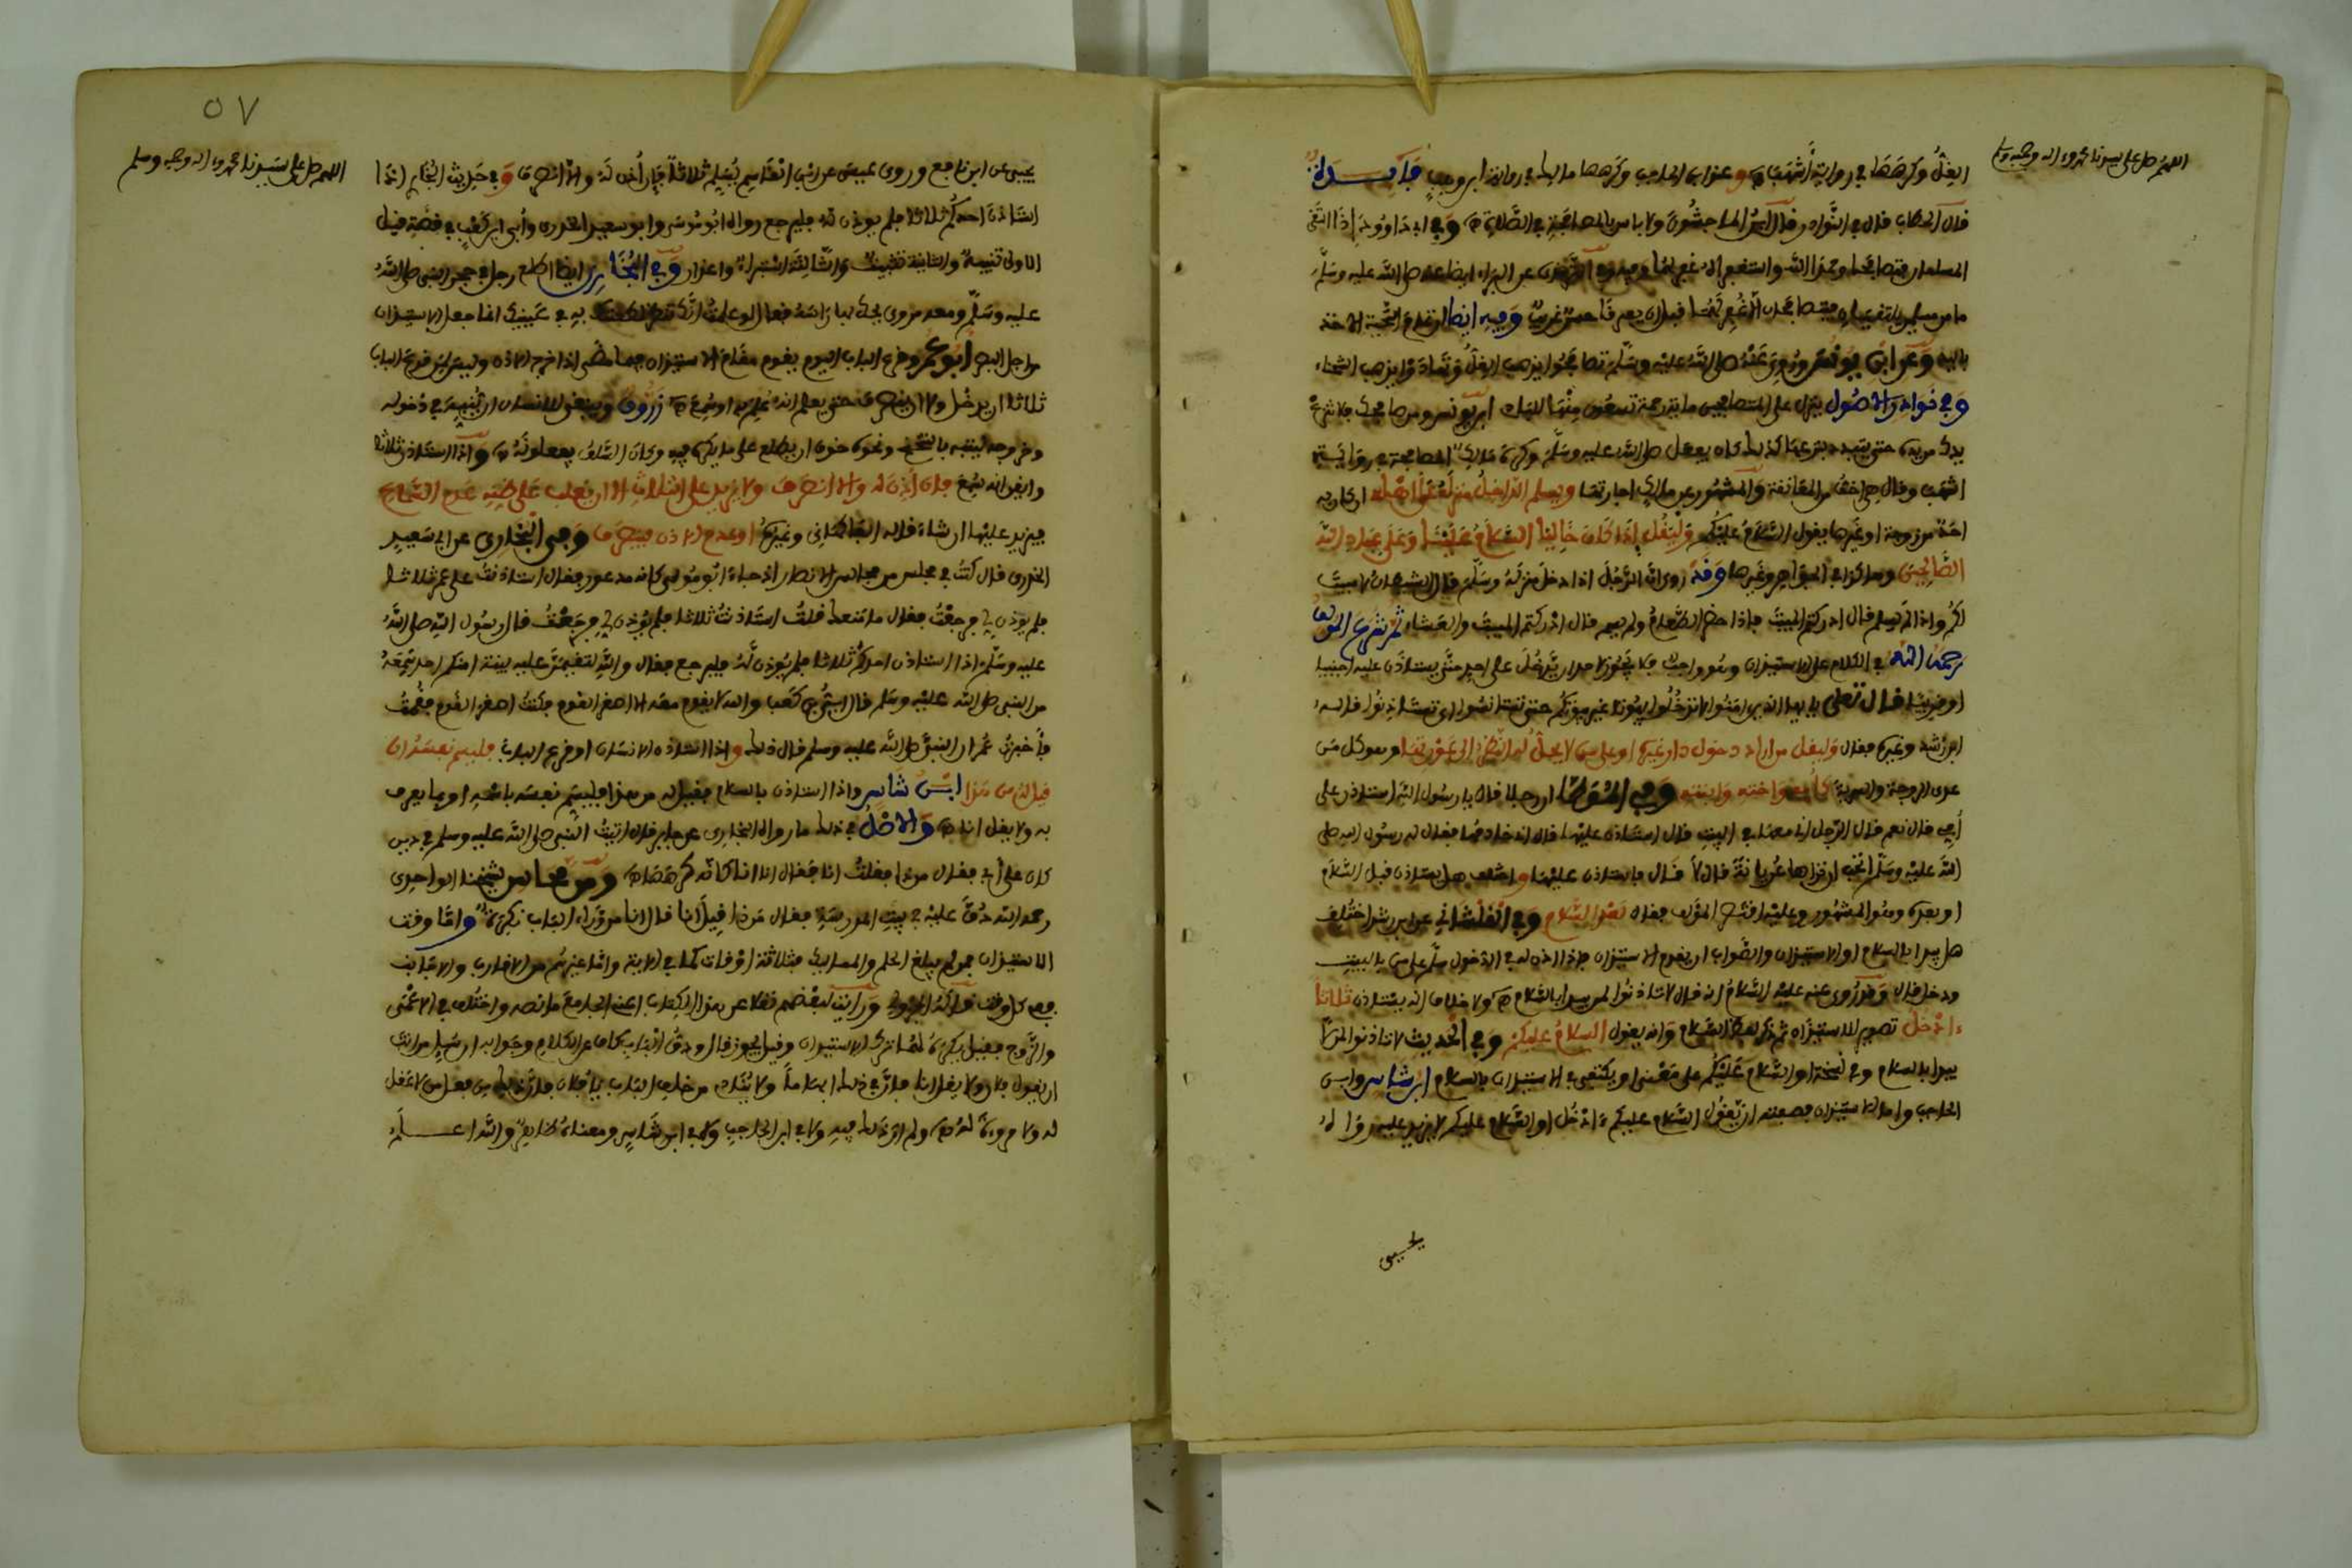 اللهم صل على سيدنا محمد وءاله وصحبه وسلم
الغل وكرهها في رواية أشهب وعزو ابن الحاجب وكرهها مالك في رواية ابن وهب فايدة
قال الحطاب قال في النوادر قال ابن الماجشون ولا باس بالمصافحة في الصلاة وفي ابي داوود اذا التقى
المسلمان فتصافحا وحمدا الله واستغفراه غفر لهما وفيه عن البراء ايضا عنه صلى الله عليه وسلم
ما من مسلمين يلتقيان فيتصافحان الا غفر لهما قبل ان يتفرقا حسن غريب وفيه ايضا ان تمام التحية الاخذ
باليد وعن ابن يونس وروي عنه صلى الله عليه وسلم تصافحوا يذهب الغل وتهادوا يذهب الشحناء
وفي نوادر الاصول ينزل على المتصافحين ماية رحمة تسعون منها للبادي ابن يونس ومن صافحك فلا تنزع
يدك من يده حتى يبتدئ بنزعها كذلك كان يفعل صلى الله عليه وسلم وكره مالك المصافحة في رواية
اشهب وقال هي اخف من المعانقة والمشهور عن مالك اجازتها ويسلم الداخل منزله على اهله ان كان به
احد من زوجة او غيرها يقول السلام عليكم وليقل إذا كان خاليا السلام علينا وعلى عباد الله
الصالحين وهذا في الجواهر وغيرها وقد روي ان الرجل اذا دخل منزله وسلم قال الشيطان لا مبيت
لكم واذا لم يسلم قال ادركتم المبيت فاذا حضر الطعام ولم يسم قال ادركتم المبيت والعشاء ثم شرع المولف
رحمه الله في الكلام على الاستيذان وهو واجب فلا يجوز لاحد ان يدخل على احد حتى يستاذن عليه اجنبيا
او قريبا قال تعلى يا ايها الذين امنوا لا تدخلوا بيوتا غير بيوتكم حتى تستانسوا اي تستاذنوا قاله
ابن رشد وغيره فقال وليقل من اراد دخول دار غيره او على من لا يحل له النظر الى عورتها وهو كل من
عدى الزوجة والسرية كأمه واخته وابنته وفي الموطإ ان رجلا قال يا رسول الله استاذن على
أمي قال نعم قال الرجل اني معها في البيت قال استاذن عليها قال اني خادمها فقال له رسول الله صلى
الله عليه وسلم أتحب ان تراها عريانة قال لا قال فاستاذن عليها واختلف هل يستاذن قبل السلام
او بعده وهو المشهور وعليه اقتصر المؤلف فقال بعد السلام وفي القلشاني عن ابن رشد اختلف
هل يبدا بالسلام او الاستيذان والصواب ان يقدم الاستيذان فاذا اذن له في الدخول سلم على من بالبيت
ودخل قال وقد روي عنه عليه السلام انه قال لا تاذنوا لمن لم يبدا بالسلام ولا خلاف انه يستاذن ثلاثا
ءادخل تصوير للاستيذان ثم ذكر لفظ السلام وانه يقول السلام عليكم وفي الحديث لا تاذنوا لمن لا
يبدا بالسلام وفي نسخة او السلام عليكم على معنى او يكتفي في الاستيذان بالسلام ابن شاس وابن
الحاجب واما الاستيذان فصفته ان يقول السلام عليكم ءادخل او السلام عليكم لا يزيد عليه روا له
يحيى
٥٧
اللهم صل على سيدنا محمد وءاله وصحبه وسلم
يحيى عن ابن نافع وروى عيسى عن ابن القاسم يسلم ثلاثا فإن أذن له والا انصرف وفي حديث البخاري إذا
استاذن احدكم ثلاثا فلم يوذن له فليرجع رواه ابو موسى وابو سعيد الخدري وأبي ابن كعب في قصة قيل
الاولى تنبيه والثانية تثبيت والثالثة استبراء واعذار وفي البخاري ايضا اطلع رجل في حجر النبي صلى الله
عليه وسلم ومعه مدرى يحك بها راسه فقال لو علمت انك تنظر لطعنت به في عينيك انما جعل الاستيذان
من اجل البصر ابو عمر وقرع الباب اليوم يقوم مقام الاستيذان فيما مضى اذا خرج الاذن وليس قرع الباب
ثلاثا ان يدخل ولا ان ينصرف حتى يعلم انه علم به او سمع زروق وينبغي للانسان ان يتنبه في دخوله
وخروجه لبيته بالتنحنح ونحوه خوف ان يطلع على ما يكره فيه وكان السلف يفعلونه واذا استاذن ثلاثا
وايقن انه سمع فان أذن له والا انصرف ولا يزيد على الثلاث الا ان يغلب على ظنه عدم السماع
فيزيد عليها ان شاء قاله الفاكهاني وغيره او عدم الاذن فينصرف وفي البخاري عن ابي سعيد
الخدري قال كنت في مجلس من مجالس الانصار اذ جاء ابو موسى كانه مذعور فقال استاذنت على عمر ثلاثا
فلم يوذن لي فرجعت فقال ما منعك قلت استاذنت ثلاثا فلم يؤذن لي فرجعت قال رسول الله صلى الله
عليه وسلم اذا استاذن احدكم ثلاثا فلم يوذن له فليرجع فقال والله لتقيمن عليه بينة امنكم احد سمعه
من النبي صلى الله عليه وسلم فقال أبي بن كعب والله لا يقوم معه الا اصغر القوم فكنت اصغر القوم فقمت
فأخبرت عمر ان النبي صلى الله عليه وسلم قال ذلك واذا استاذن الانسان او قرع الباب فليسم نفسه ان
قيل له من هذا ابن شاس واذا استاذن بالسلام فقيل له من هذا فليسم نفسه باسمه او بما يعرف
به ولا يقل انا والاصل في ذلك ما رواه البخاري عن جابر قال اتيت النبي صلى الله عليه وسلم في دين
كان على أبي فقال من ذا فقلت انا فقال انا انا كانه كرهها ومن محاسن شيخنا الواحدي
رحمه الله دق عليه في بيت المدرسة فقال من ذا قيل انا قال انا من وراء الباب نكرة واما وقت
الاستيذان فمن لم يبلغ الحلم والمماليك فثلاثة اوقات كما في الاية واما غيرهم من الاقارب والاجانب
ففي كل وقت قاله ورايت لبعضهم نقلا عن هذا الكتاب اعني الجامع ما نصه واختلف في الاعمى
والزوج فقيل يكره لهما ترك الاستيذان وقيل يجوز قال ودق الباب كاف عن الكلام وجوابه ان سئل من انت
ان يقول فلان ولا يقل انا فان في ذلك ابهاما ولا ينادى من خلف الباب يا فلان فان ذلك من فعل من لا عقل
له ولا مروءة له ولم ار ذلك فيه ولا في ابن الحاجب ولا في ابن شاس ومعناه ظاهر والله اعلم